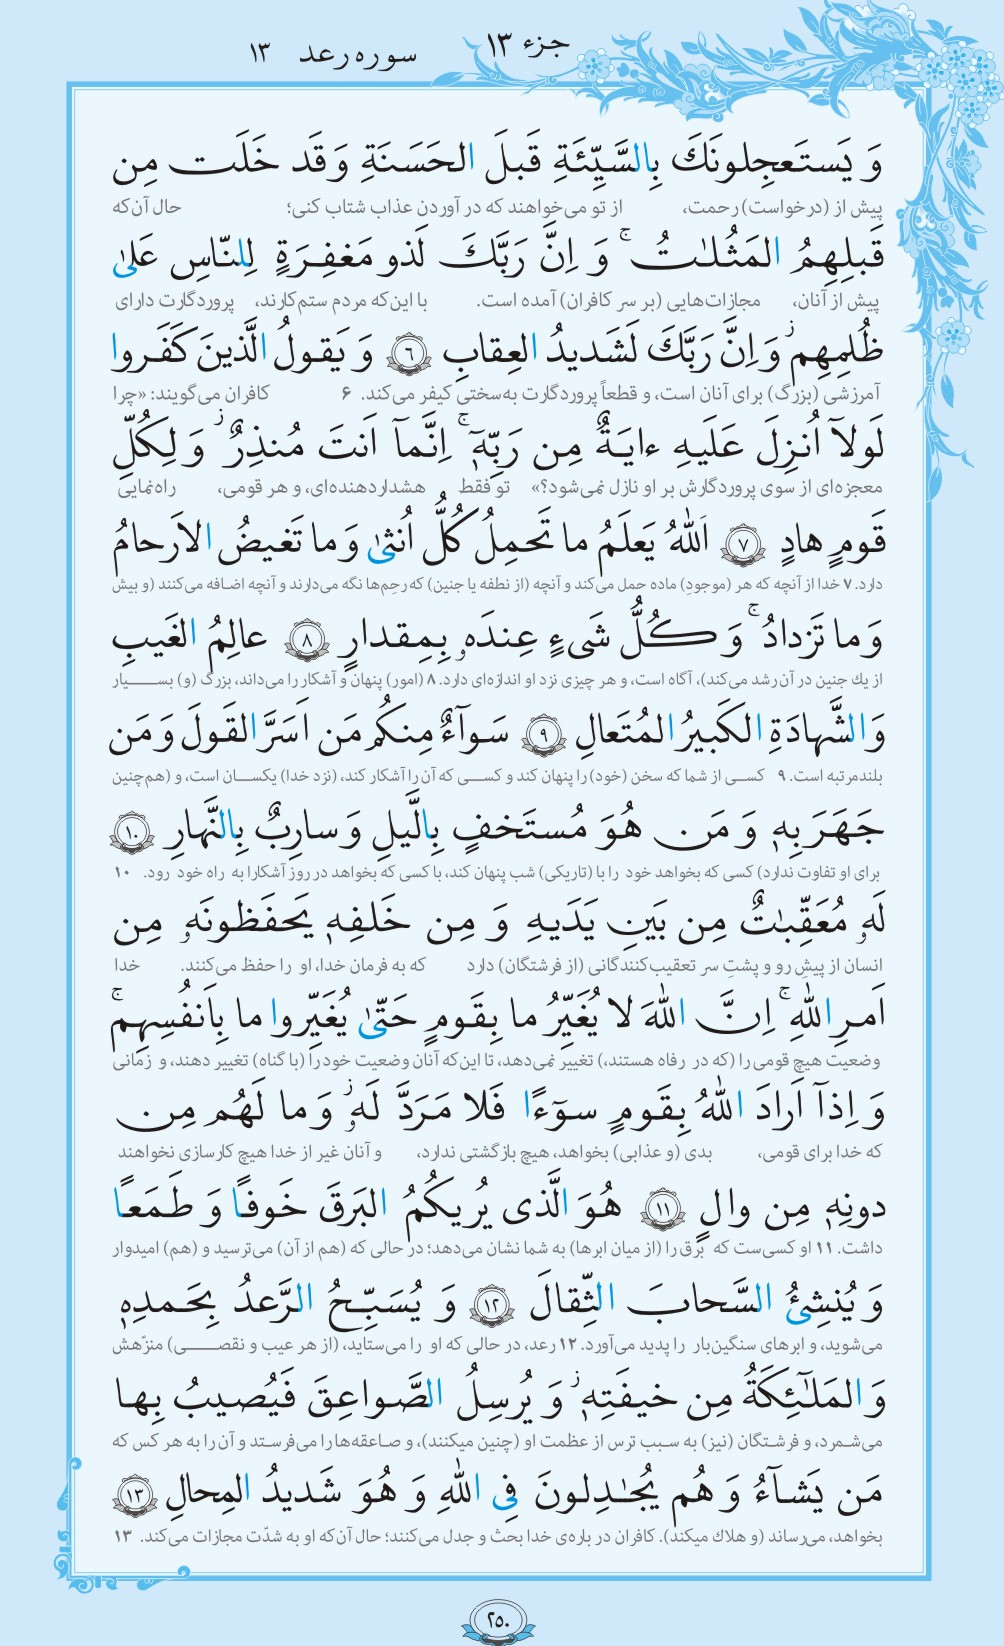 جزء ۱۳
سوره رعد ۱۳
وَ يَستَعجِلونَكَ بِالسَّيِّئَةِ قَبلَ الحَسَنَةِ وَقَد خَلَت مِن
پیش از (درخواست) رحمت، از تو می‌خواهند که در آوردن عذاب شتاب کنی؛ حال آن‌که
قَبلِهِمُ المَثُلـٰتُ ۚ وَ اِنَّ رَبَّكَ لَذو مَغفِرَةٍ لِلنّاسِ عَلىٰ
پیش از آنان، مجازات‌هایی (بر سر کافران) آمده است. با این‌که مردم ستم‌کارند، پروردگارت دارای
ظُلمِهِم ۖ وَ اِنَّ رَبَّكَ لَشَديدُ العِقابِ ﴿٦﴾ وَ يَقولُ الَّذينَ كَفَروا
آمرزشی (بزرگ) برای آنان است، و قطعاً پروردگارت به‌سختی کیفر می‌کند. ۶ کافران می‌گویند: «چرا
لَولآ اُنزِلَ عَلَيهِ ءايَةٌ مِن رَبِّهٖٓ ۗ اِنَّمآ اَنتَ مُنذِرٌ ۖ وَ لِكُلِّ
معجزه‌ای از سوی پروردگارش بر او نازل نمی‌شود؟» تو فقط هشداردهنده‌ای، و هر قومی، راه‌نمایی
قَومٍ هادٍ ﴿٧﴾ اَللّٰهُ يَعلَمُ ما تَحمِلُ كُلُّ اُنثىٰ وَ ما تَغيضُ الاَرحامُ
دارد. ۷ خدا از آنچه که هر (موجودِ) ماده حمل می‌کند و آنچه (از نطفه یا جنین) که رحِم‌ها نگه می‌دارند و آنچه اضافه می‌کنند (و بیش
وَ ما تَزدادُ ۚ وَ كُلُّ شَىءٍ عِندَهٗ بِمِقدارٍ ﴿٨﴾ عالِمُ الغَيبِ
از یك جنین در آن رشد می‌کند)، آگاه است، و هر چیزی نزد او اندازه‌ای دارد. ۸ (امور) پنهان و آشکار را می‌داند، بزرگ (و) بسیار
وَالشَّهادَةِ الكَبيرُ المُتَعالِ ﴿٩﴾ سَوآءٌ مِنكُم مَن اَسَرَّ القَولَ وَ مَن
بلندمرتبه است. ۹ کسی از شما که سخن (خود) را پنهان کند و کسی که آن را آشکار کند، (نزد خدا) یکسان است، و (هم‌چنین
جَهَرَ بِهٖ وَ مَن هُوَ مُستَخفٍ بِالَّيلِ وَ سارِبٌ بِالنَّهارِ ﴿١٠﴾
برای او تفاوت ندارد) کسی که بخواهد خود را با (تاریکی) شب پنهان کند، با کسی که بخواهد در روز آشکارا به راه خود رود. ۱۰
لَهٗ مُعَقِّبـٰتٌ مِن بَينِ يَدَيهِ وَ مِن خَلفِهٖ يَحفَظونَهٗ مِن
انسان از پیشِ رو و پشتِ سر تعقیب‌کنندگانی (از فرشتگان) دارد که به فرمان خدا، او را حفظ می‌کنند. خدا
اَمرِ اللّٰهِ ۗ اِنَّ اللّٰهَ لا يُغَيِّرُ ما بِقَومٍ حَتّىٰ يُغَيِّروا ما بِاَنفُسِهِم ۗ
وضعیت هیچ قومی را (که در رفاه هستند،) تغییر نمی‌دهد، تا این‌که آنان وضعیت خود را (با گناه) تغییر دهند، و زمانی
وَ اِذآ اَرادَ اللّٰهُ بِقَومٍ سوٓءًا فَلا مَرَدَّ لَهٗ ۚ وَ ما لَهُم مِن
که خدا برای قومی، بدی (و عذابی) بخواهد، هیچ بازگشتی ندارد، و آنان غیر از خدا هیچ کارسازی نخواهند
دونِهٖ مِن والٍ ﴿١١﴾ هُوَ الَّذى يُريكُمُ البَرقَ خَوفًا وَ طَمَعًا
داشت. ۱۱ او کسی‌ست که برق را (از میان ابرها) به شما نشان می‌دهد؛ در حالی که (هم از آن) می‌ترسید و (هم) امیدوار
وَ يُنشِئُ السَّحابَ الثِّقالَ ﴿١٢﴾ وَ يُسَبِّحُ الرَّعدُ بِحَمدِهٖ
می‌شوید، و ابرهای سنگین‌بار را پدید می‌آورد. ۱۲ رعد، در حالی که او را می‌ستاید، (از هر عیب و نقصی) منزّهش
وَالمَلـٰٓئِكَةُ مِن خيفَتِهٖ ۚ وَ يُرسِلُ الصَّواعِقَ فَيُصيبُ بِها
می‌شمرد، و فرشتگان (نیز) به سبب ترس از عظمت او (چنین میکنند)، و صاعقه‌ها را می‌فرستد و آن را به هر کس که
مَن يَشآءُ وَ هُم يُجـٰدِلونَ فِى اللّٰهِ وَ هُوَ شَديدُ المِحالِ ﴿١٣﴾
بخواهد، می‌رساند (و هلاك میکند). کافران در باره‌ی خدا بحث و جدل می‌کنند؛ حال آن‌که او به شدّت مجازات می‌کند. ۱۳
۲۵۰